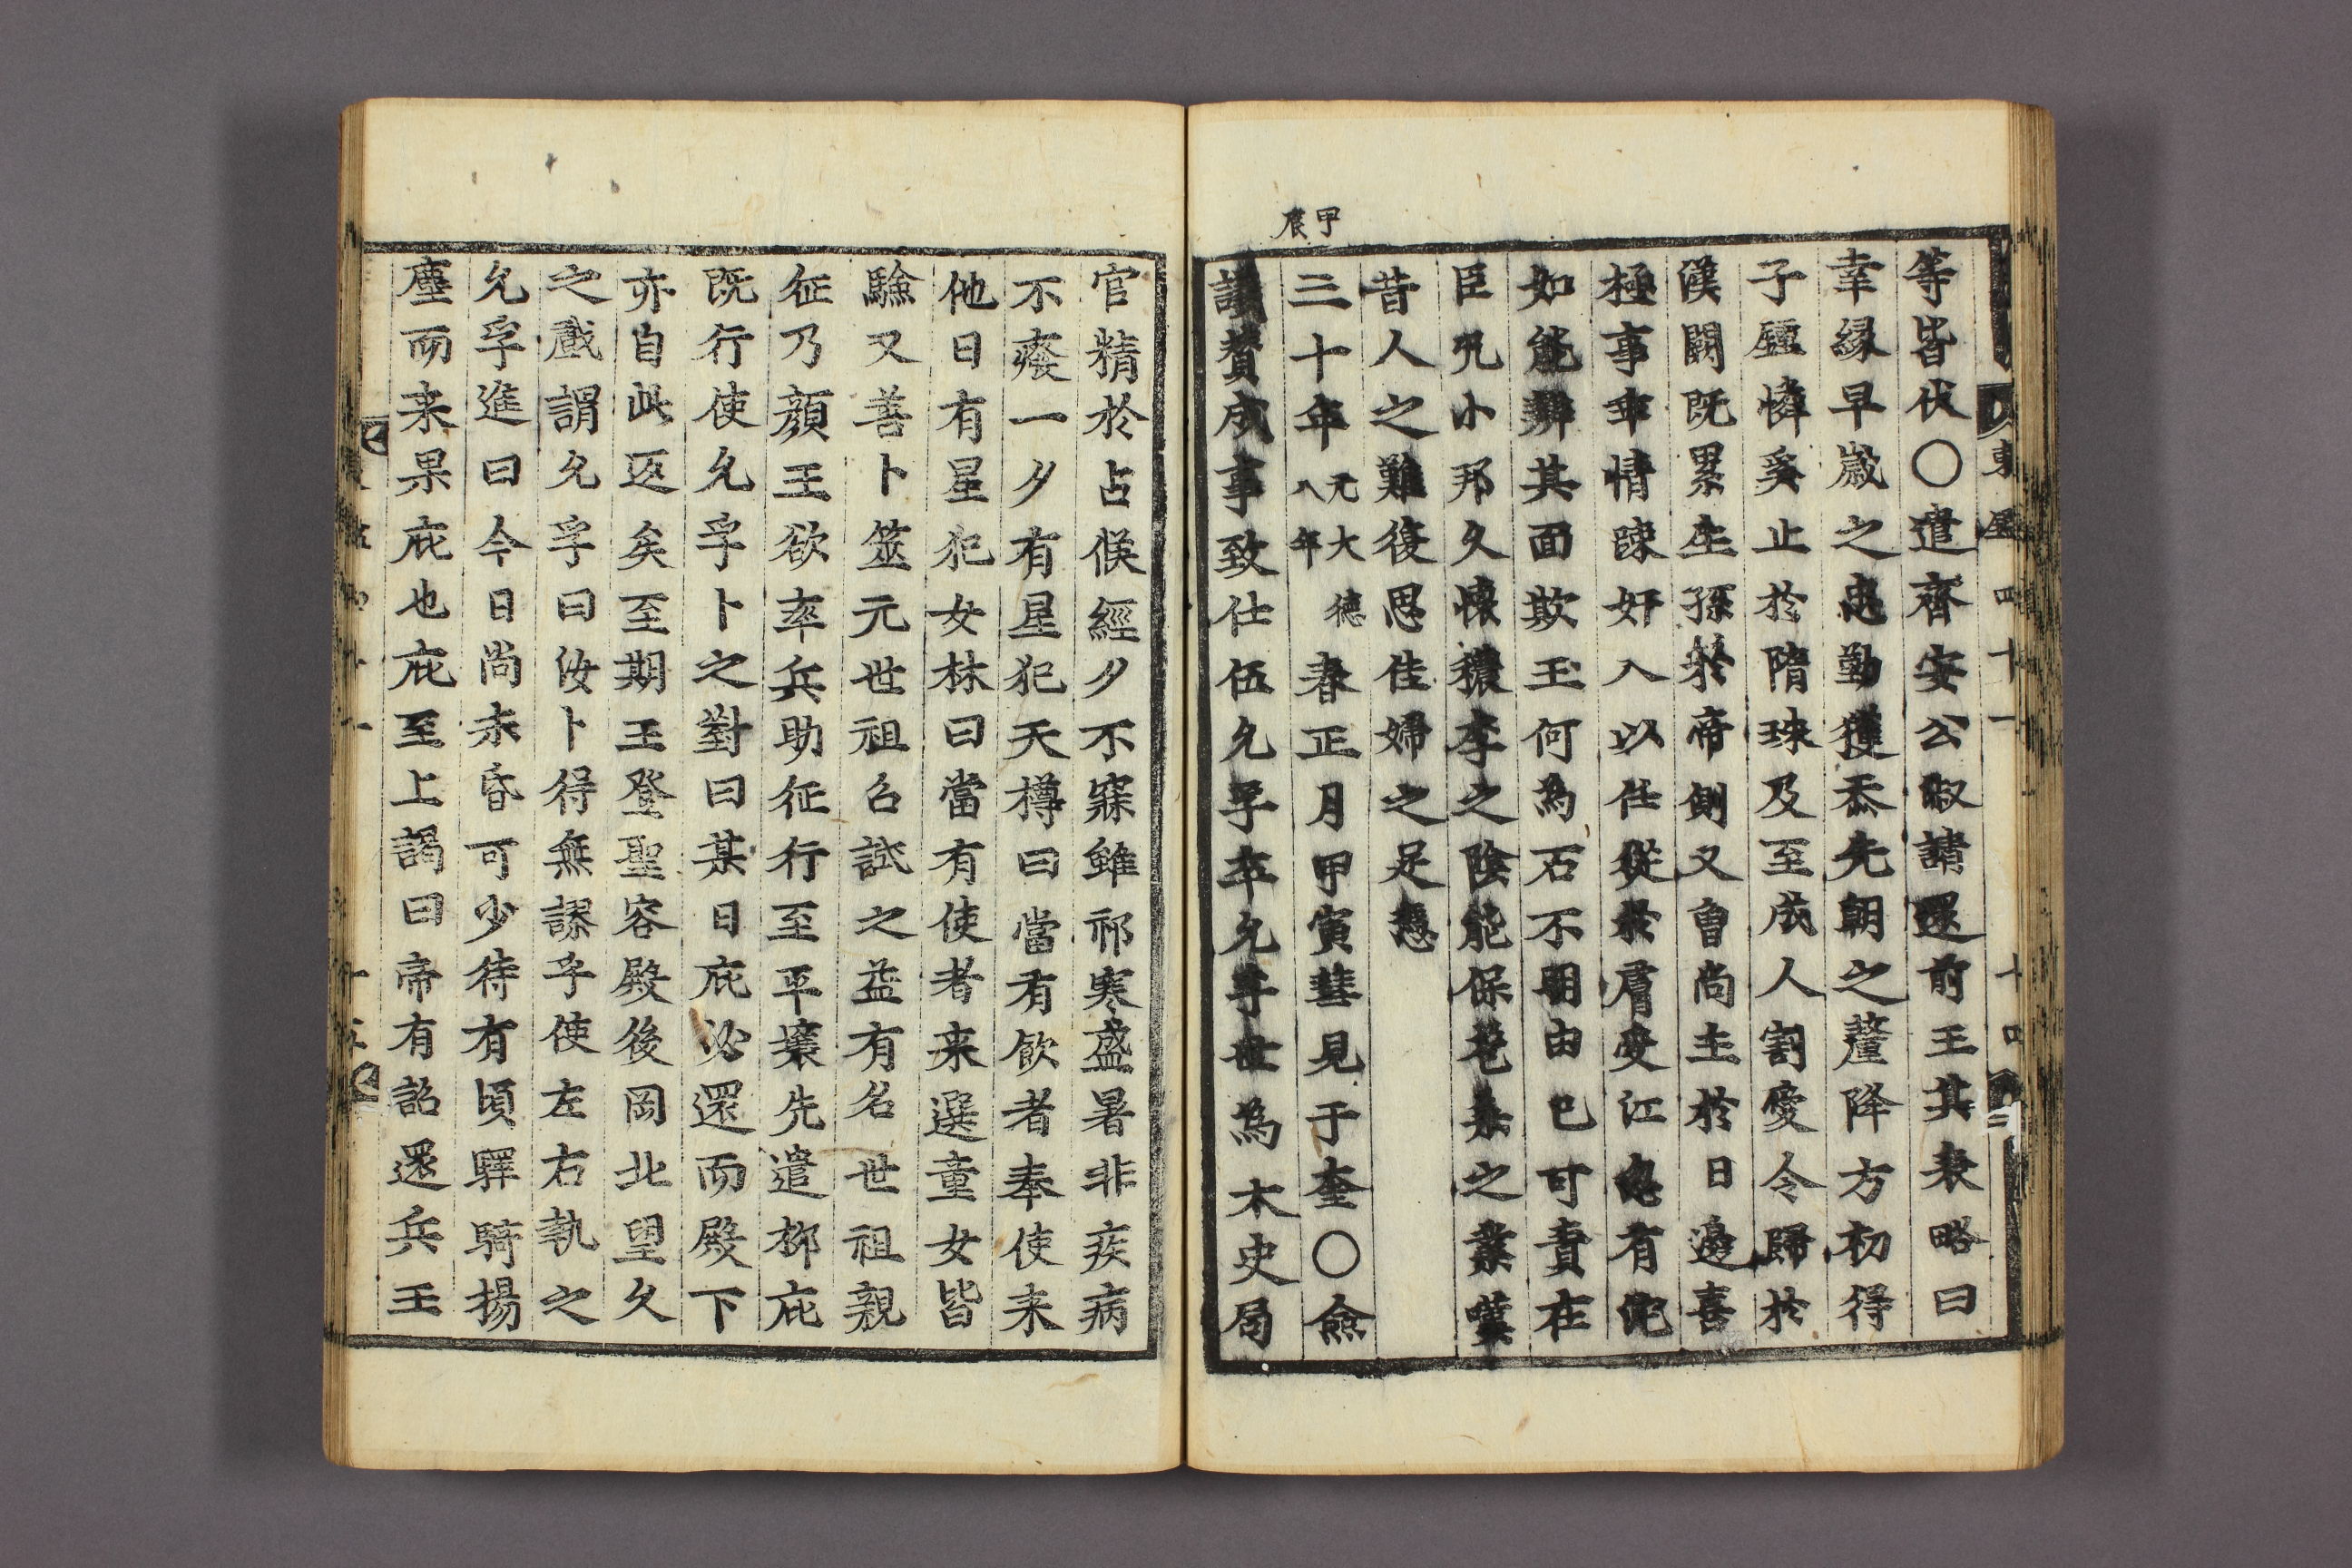 等皆伏○遣齊安公淑請還前王其表略曰
幸緣早歲之忠勤獲忝先朝之釐降方初得
子鍾憐奚止於隋珠及至成人割愛令歸於
漢闕既累生孫於帝側又曾尚主於日邊喜
極事乖情踈奸入以任從於膚受江充有詑
如能辨其面欺玉何為石不明由已可責在
臣况小邦久懷穠李之陰能保苞桑之業嘆
昔人之難復思佳婦之足憑
甲辰
三十年元大德八年春正月甲寅彗見于奎○僉
議贊成事致仕伍允孚卒允孚世為太史局
東 四十一 十四
官精於占候經夕不寐雖祁寒盛暑非疾病
不癈一夕有星犯天樽曰當有飮者奉使来
他日有星犯女林曰當有使者来選童女皆
驗又善卜筮元世祖召試之益有名世祖親
征乃顔王欲率兵助征行至平壤先遣柳庇
既行使允孚卜之對曰某日庇必還而殿下
亦自此返矣至期王登聖容殿後岡北望久
之戱謂允孚曰汝卜得無謬乎使左右執之
允孚進曰今日尚未昏可少待有頃驛騎揚
塵而来果庇也庇至上謁曰帝有詔還兵王